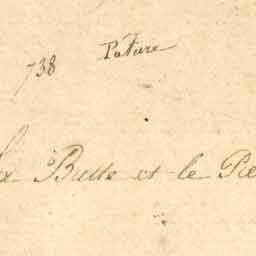 738 Pature
La Butte et le Pré